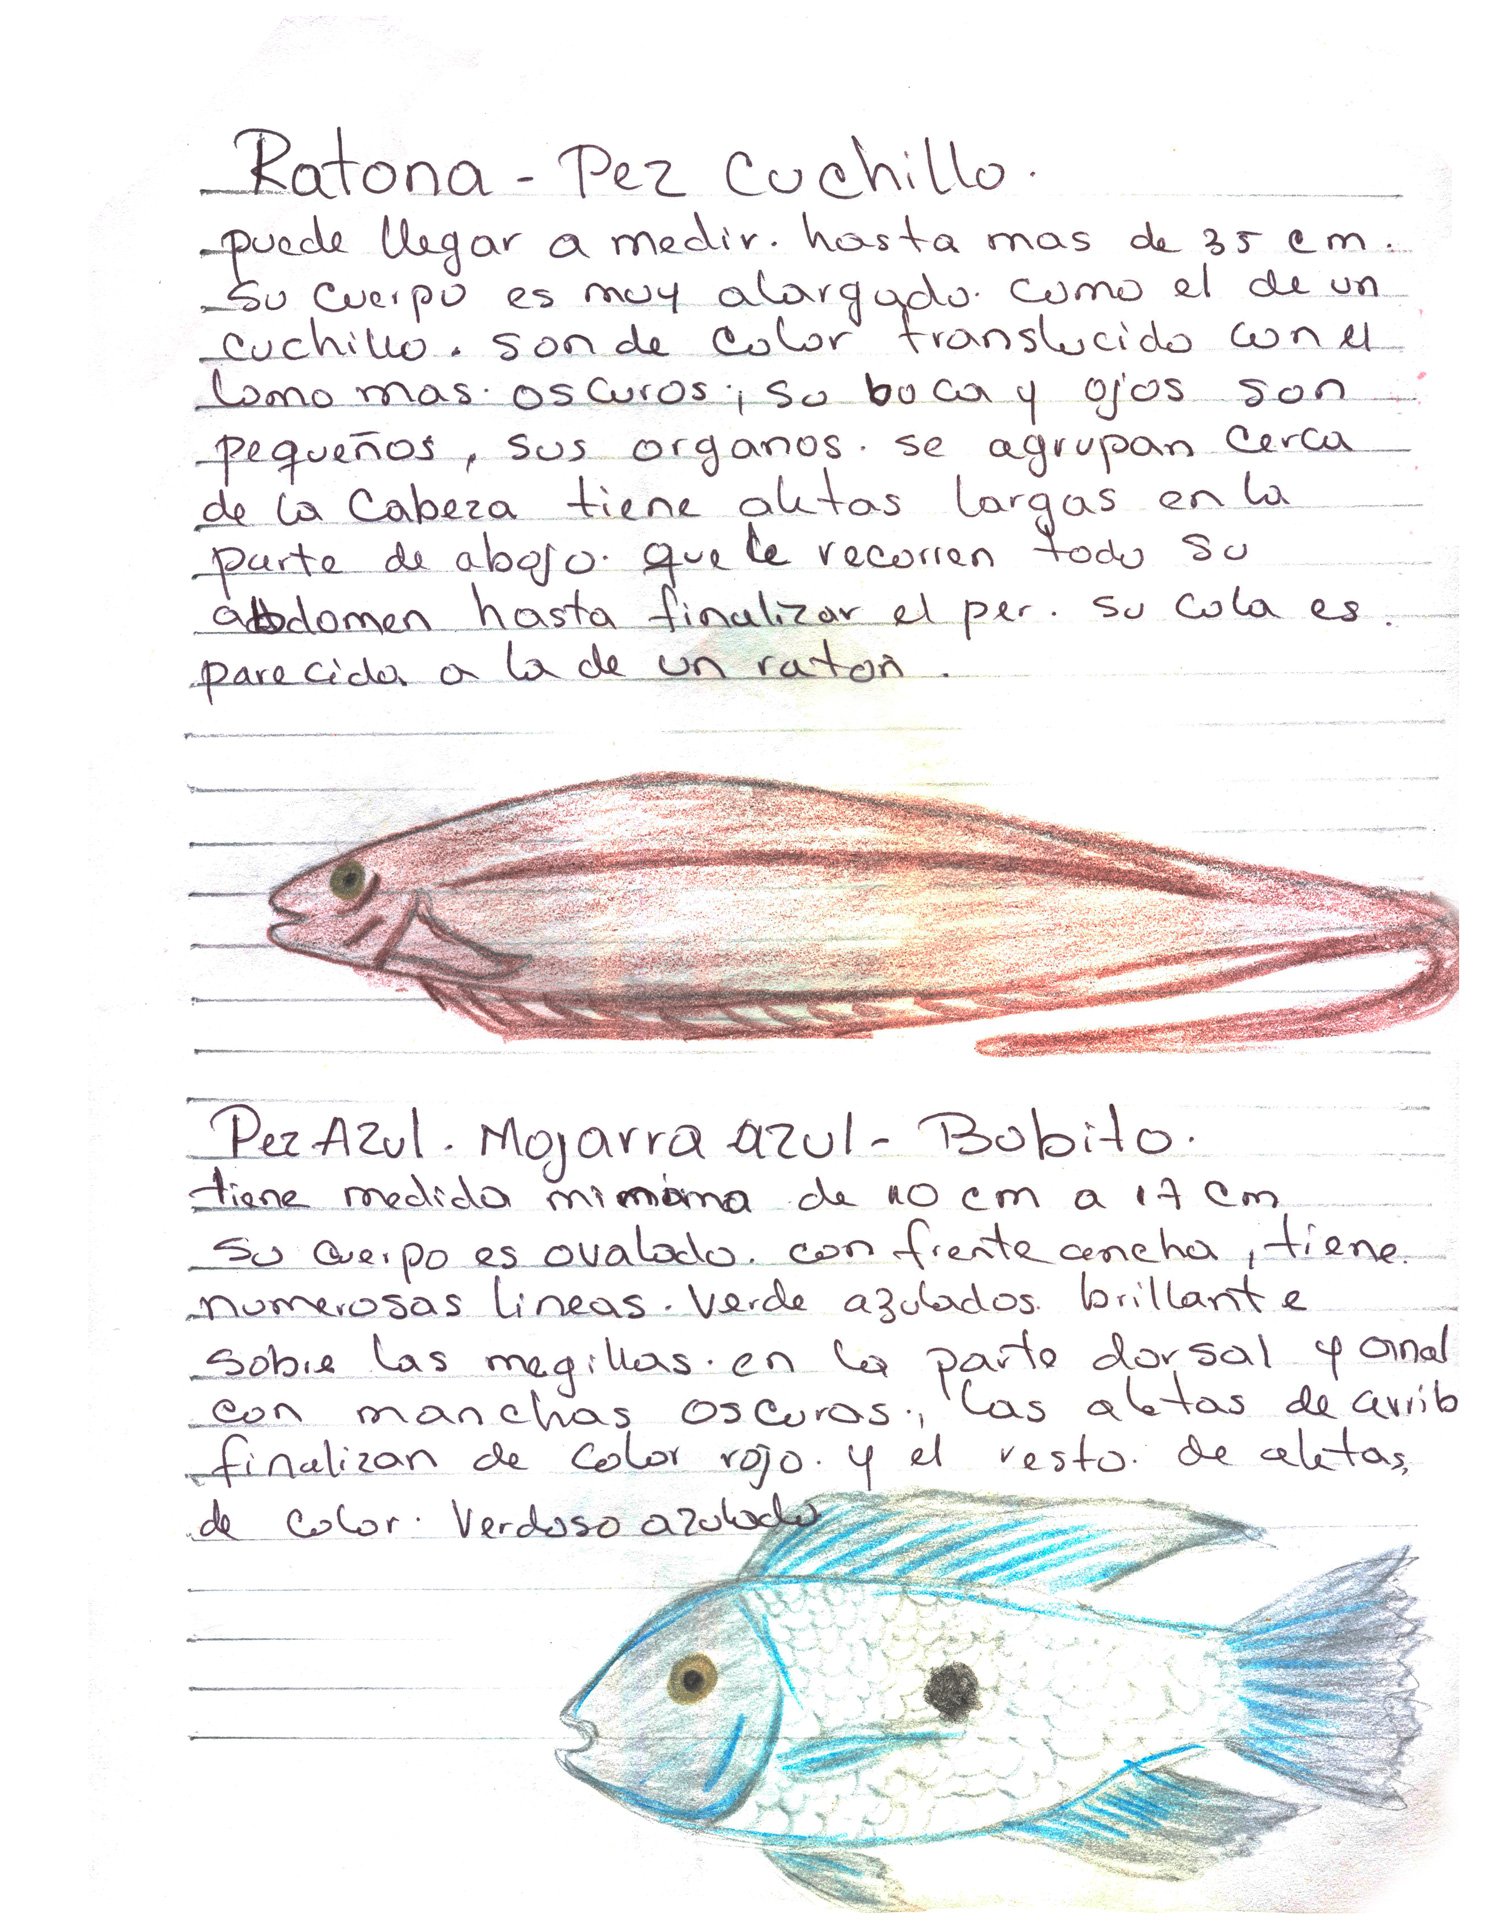 Ratona - Pez Cuchillo.
puede llegar a medir. hasta mas de 35 cm.
su cuerpo es muy alargado. como el de un
cuchillo. son de color translucido con el
lomo mas. oscuros; su boca y ojos son
pequeños, sus organos. se agrupan cerca
de la Cabeza tiene aletas largas en la
parte de abajo. que le recorren todo su
abdomen hasta finalizar el pez. su cola es.
parecida a la de un raton.
Pez Azul. Mojarra azul - Bobito.
tiene medida minima de 10 cm a 17 cm
su cuerpo es ovalado. con frente ancha, tiene.
numerosas lineas. verde azulados. brillante
sobre las megillas. en la parte dorsal y anal
con manchas oscuras., las aletas de arrib
finalizan de color rojo. y el resto. de aletas,
de color. Verdoso azulado